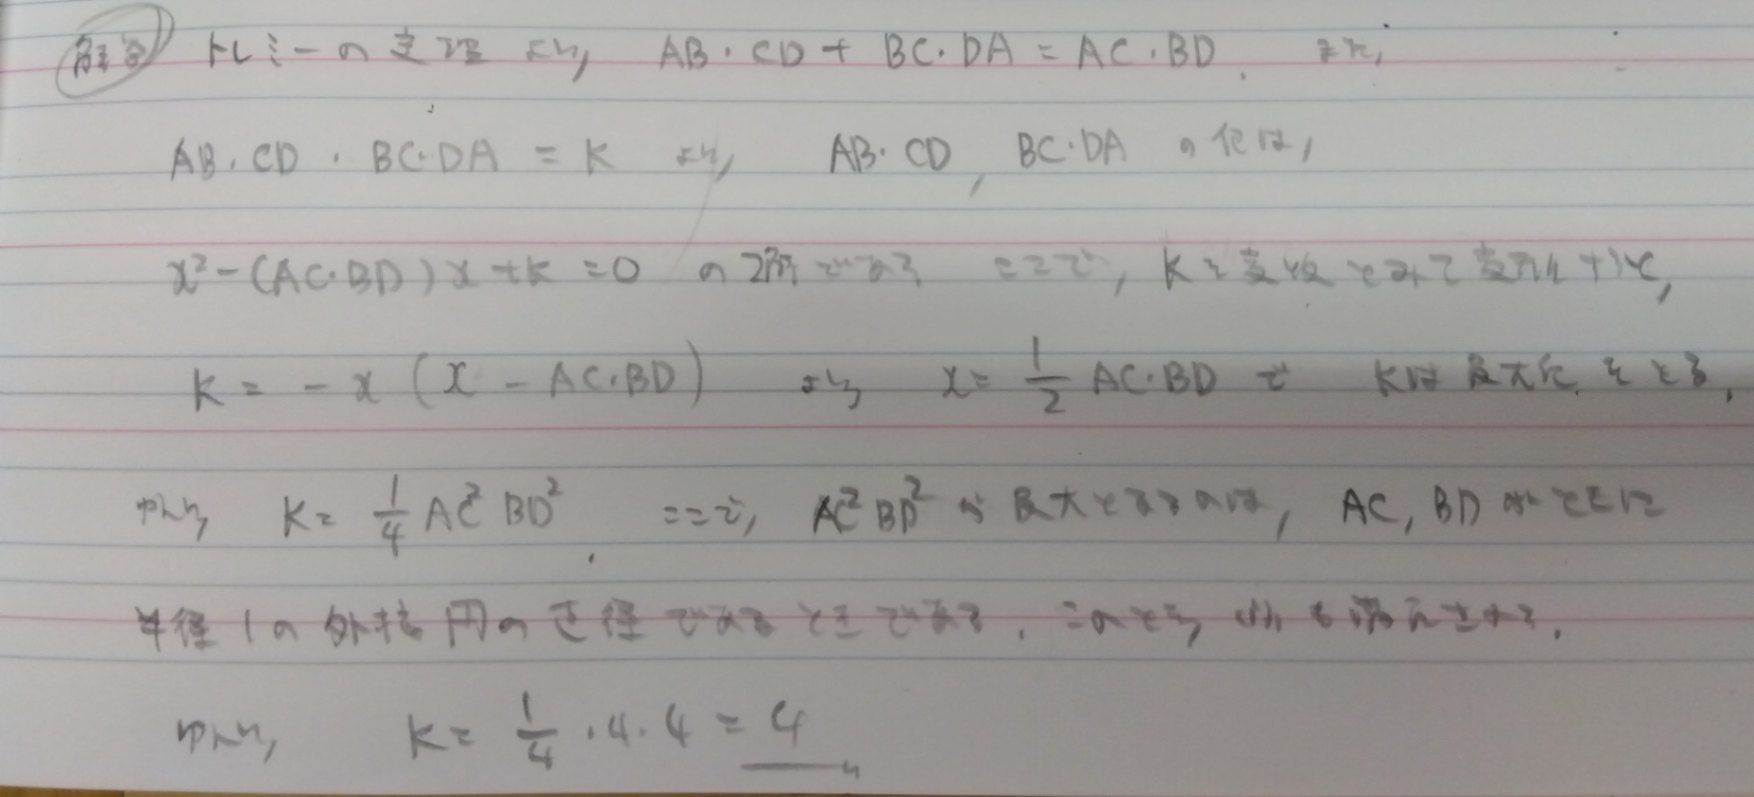 解答 トレミーの定理より, AB・CD + BC・DA = AC・BD. また,
AB・CD・BC・DA = K より, AB・CD, BC・DA の値は,
x²-(AC・BD)x+k=0 の2解である ここで, Kを変数とみて変形すると,
K = -x (x - AC・BD) より x = 1/2 AC・BD で Kは最大値をとる.
ゆえに, K = 1/4 AC² BD². ここで, AC² BD² が最大となるのは, AC, BD がともに
半径1の外接円の直径であるときである. このとき, も満たされる.
ゆえに, K = 1/4 ・4・4 = 4